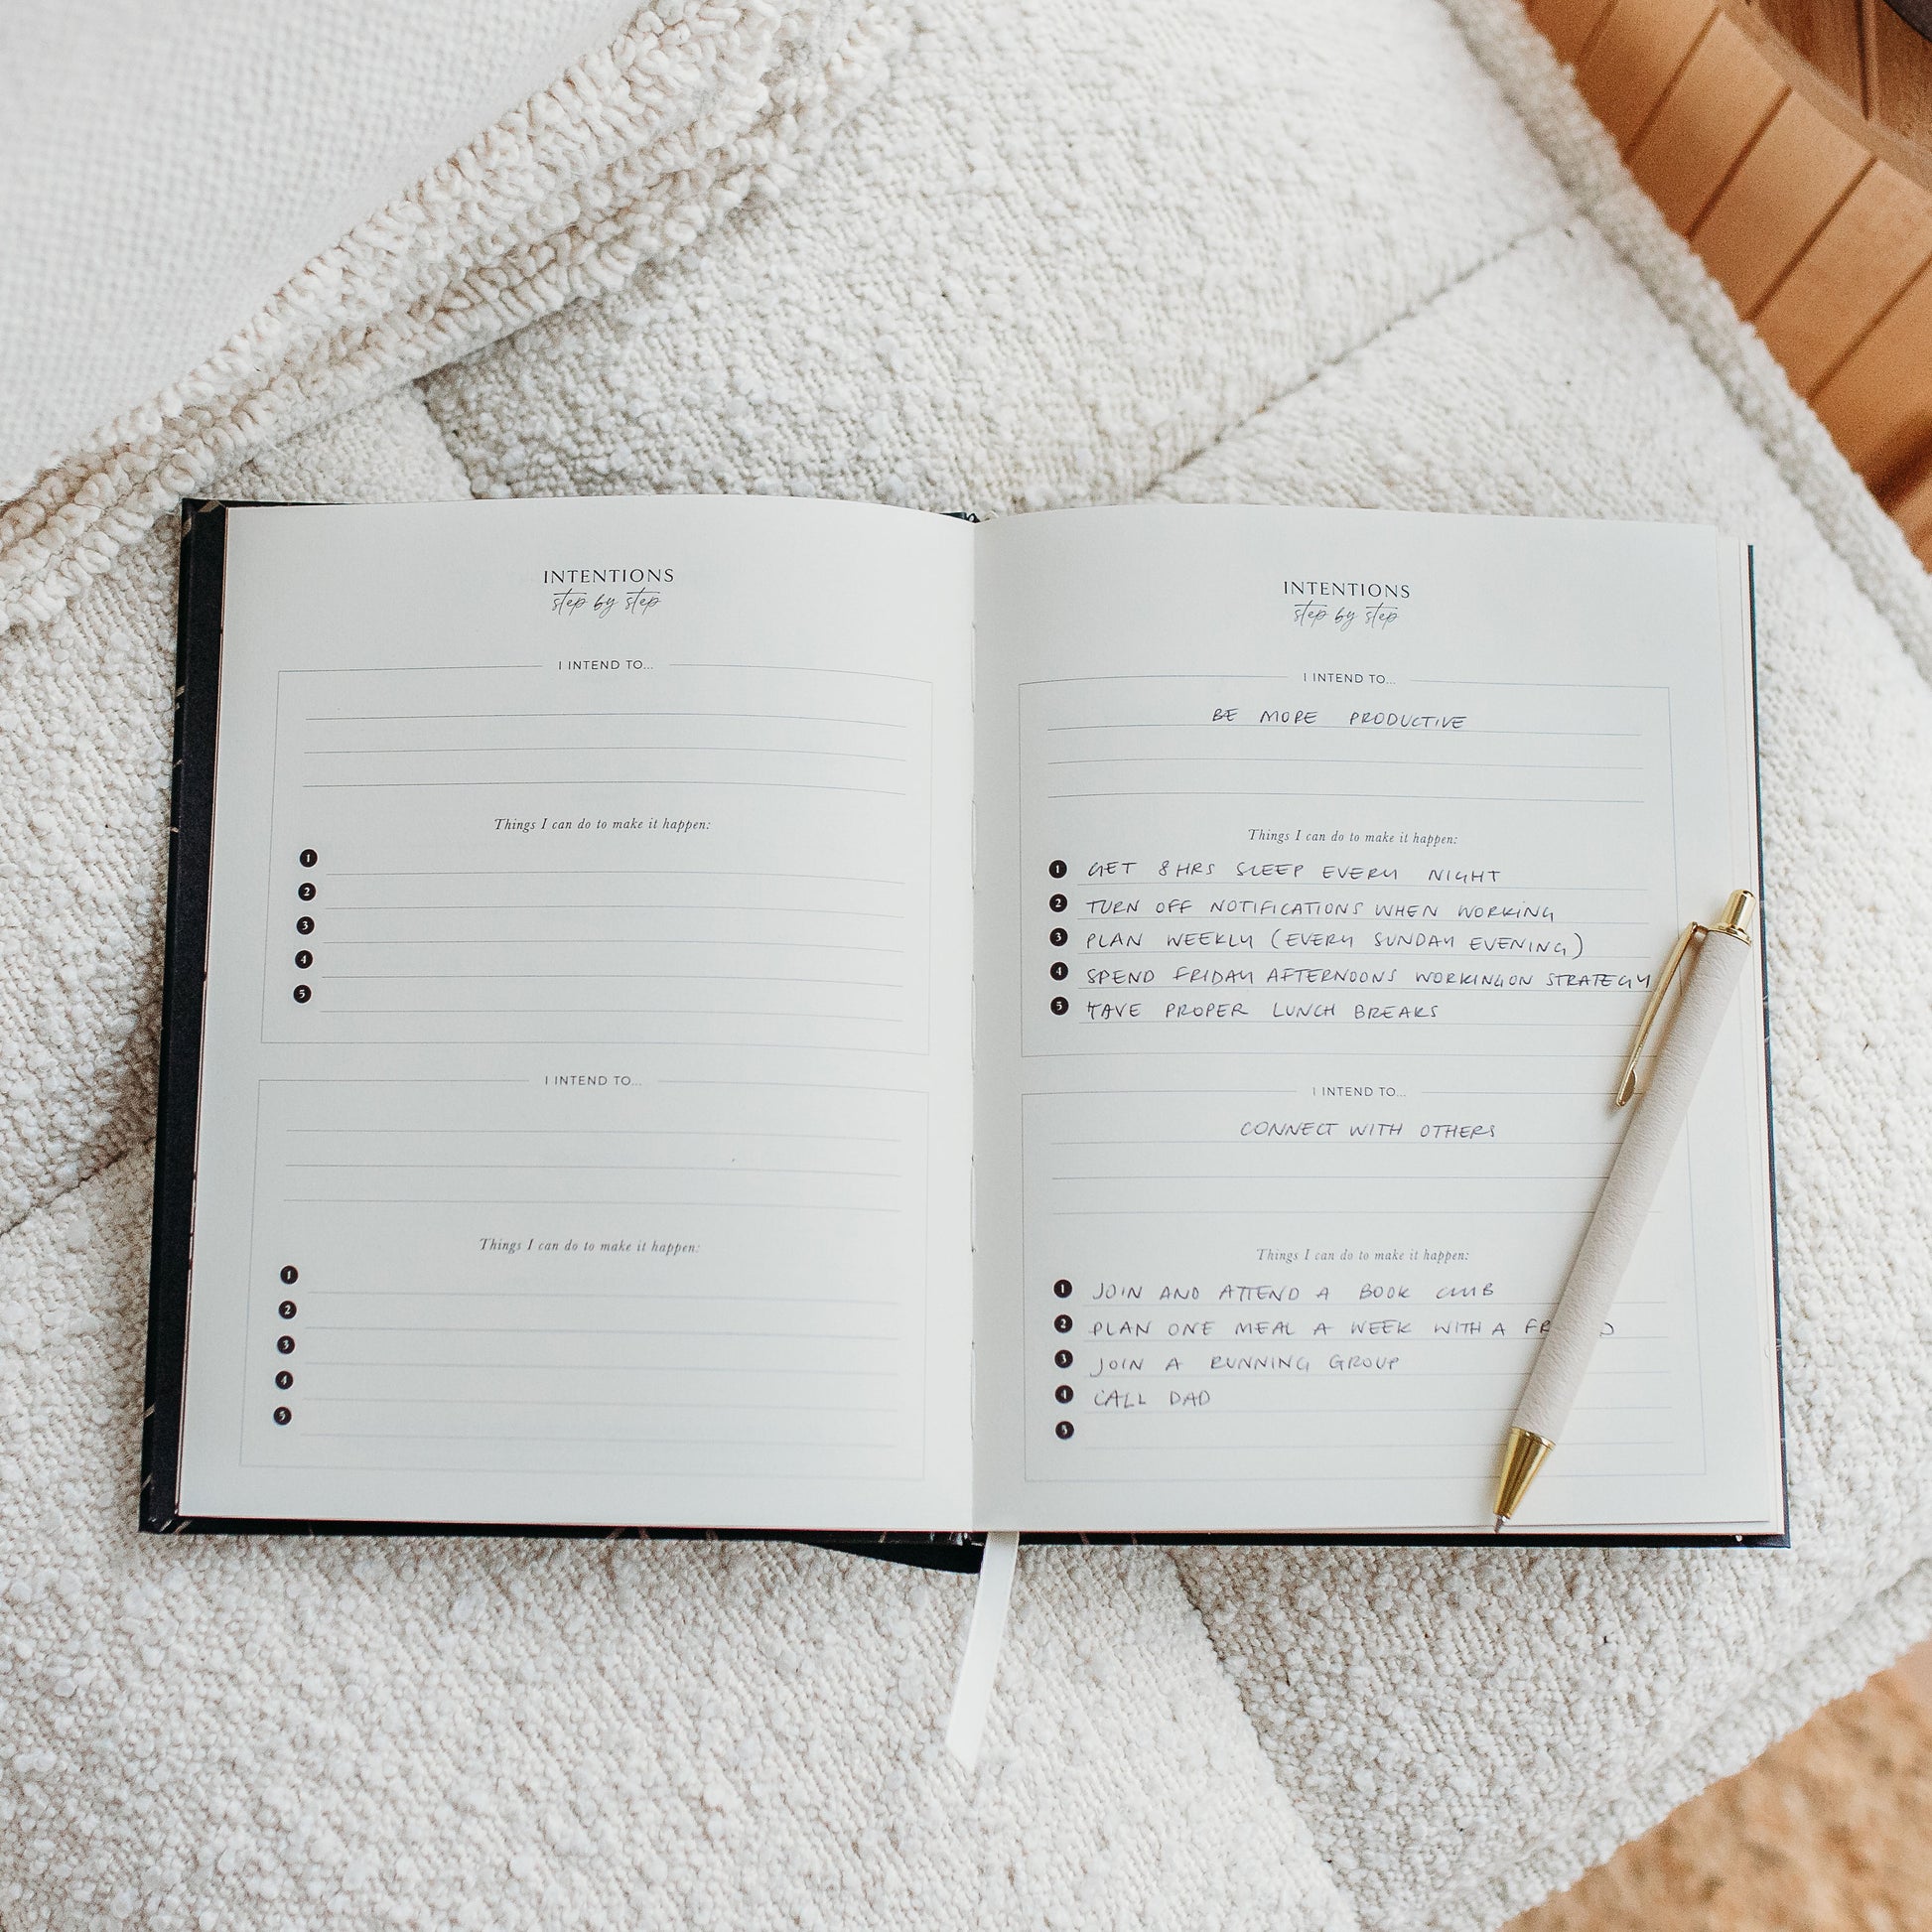 INTENTIONS
step by step
I INTEND TO...
Things I can do to make it happen:
1
2
3
4
5
I INTEND TO...
Things I can do to make it happen:
1
2
3
4
5
INTENTIONS
step by step
I INTEND TO...
BE MORE PRODUCTIVE
Things I can do to make it happen:
1 GET 8HRS SLEEP EVERY NIGHT
2 TURN OFF NOTIFICATIONS WHEN WORKING
3 PLAN WEEKLY (EVERY SUNDAY EVENING)
4 SPEND FRIDAY AFTERNOONS WORKING ON STRATEGY
5 PROPER LUNCH BREAKS
I INTEND TO...
CONNECT WITH OTHERS
Things I can do to make it happen:
1 JOIN AND ATTEND A BOOK CLUB
2 PLAN ONE MEAL A WEEK WITH A
3 JOIN A RUNNING GROUP
4 CALL DAD
5